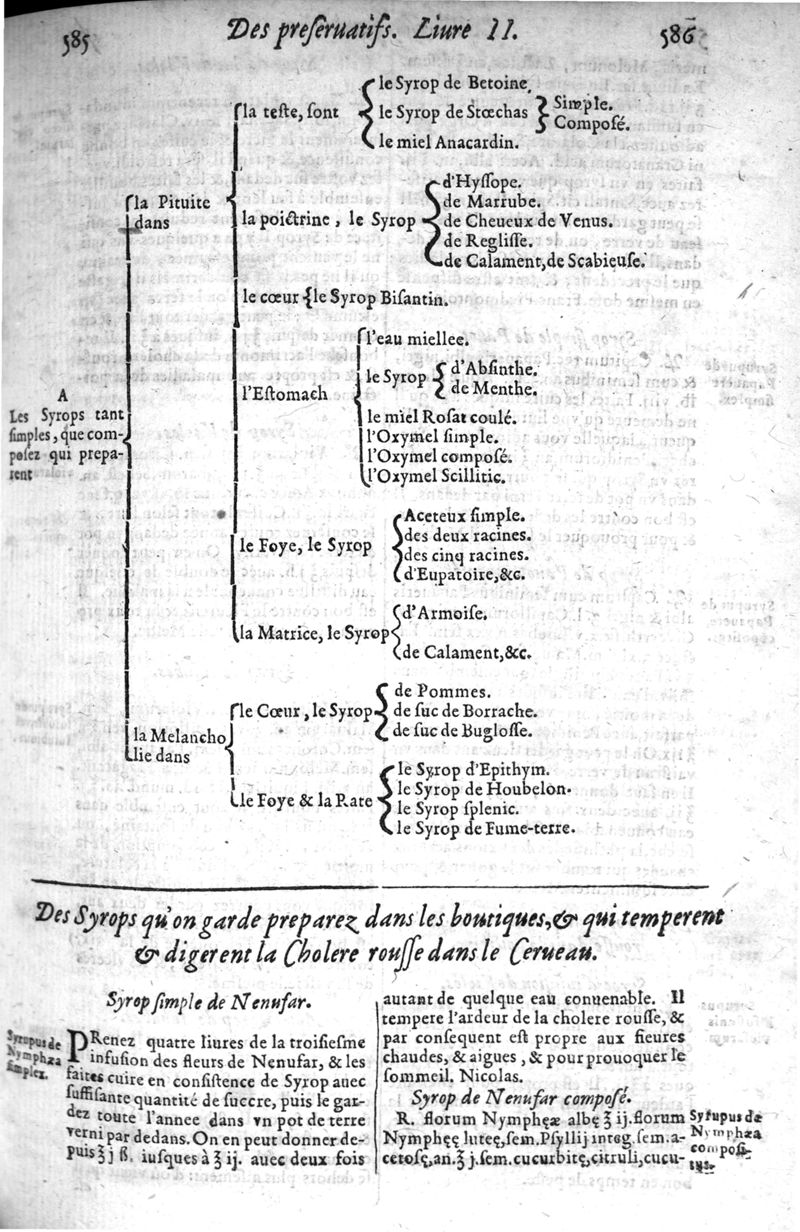 585
Des preſeruatifs. Liure II.
586
A
Les Syrops tant
ſimples, que com-
poſez qui prepa-
rent
la Pituite
dans
la teſte, ſont
le Syrop de Betoine,
le Syrop de Stœchas
Simple.
Compoſé.
le miel Anacardin.
la poictrine, le Syrop
d'Hyſſope.
de Marrube.
de Cheueux de Venus.
de Regliſſe.
de Calament, de Scabieuſe.
le cœur
le Syrop Biſantin.
l'Eſtomach
l'eau miellee.
le Syrop
d'Abſinthe.
de Menthe.
le miel Roſat coulé.
l'Oxymel ſimple.
l'Oxymel compoſé.
l'Oxymel Scillitic.
le Foye, le Syrop
Aceteux ſimple.
des deux racines.
des cinq racines.
d'Eupatoire, &c.
la Matrice, le Syrop
d'Armoiſe.
de Calament, &c.
la Melancho
lie dans
le Cœur, le Syrop
de Pommes.
de ſuc de Borrache.
de ſuc de Bugloſſe.
le Foye & la Rate
le Syrop d'Epithym.
le Syrop de Houbelon.
le Syrop ſplenic.
le Syrop de Fume-terre.
Des Syrops qu'on garde preparez dans les boutiques, & qui temperent
& digerent la Cholere rouſſe dans le Cerueau.
Syrop ſimple de Nenufar.
Syrupus de
Nymphæa
ſimplex.
PRenez quatre liures de la troiſieſme
infuſion des fleurs de Nenufar, & les
faites cuire en conſiſtence de Syrop auec
ſuffiſante quantité de ſuccre, puis le gar-
dez toute l'annee dans vn pot de terre
verni par dedans. On en peut donner de-
puis ℥ j ß. iuſques à ℥ ij. auec deux fois
autant de quelque eau conuenable. Il
tempere l'ardeur de la cholere rouſſe, &
par conſequent eſt propre aux fieures
chaudes, & aigues, & pour prouoquer le
ſommeil. Nicolas.
Syrop de Nenufar compoſé.
R. florum Nymphęæ albę ℥ ij. florum
Nymphęę luteę, ſem. Pſyllij integ. ſem. a-
cetoſę, an. ℥ j. ſem. cucurbitę, citruli, cucu-
Syrupus de
Nymphæa
compoſi-
tus.